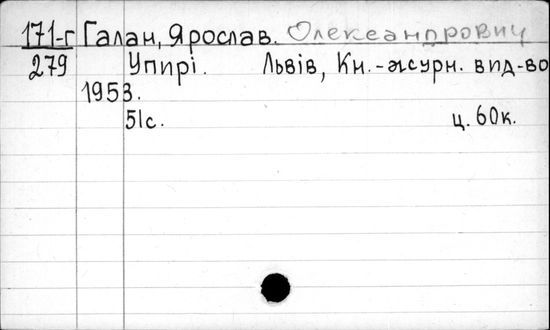 171-г Галан, Ярослав. Олександрович
279 Упирі. Львів, Кн.-журн. вид-во
1953.
51с. ц. 60к.